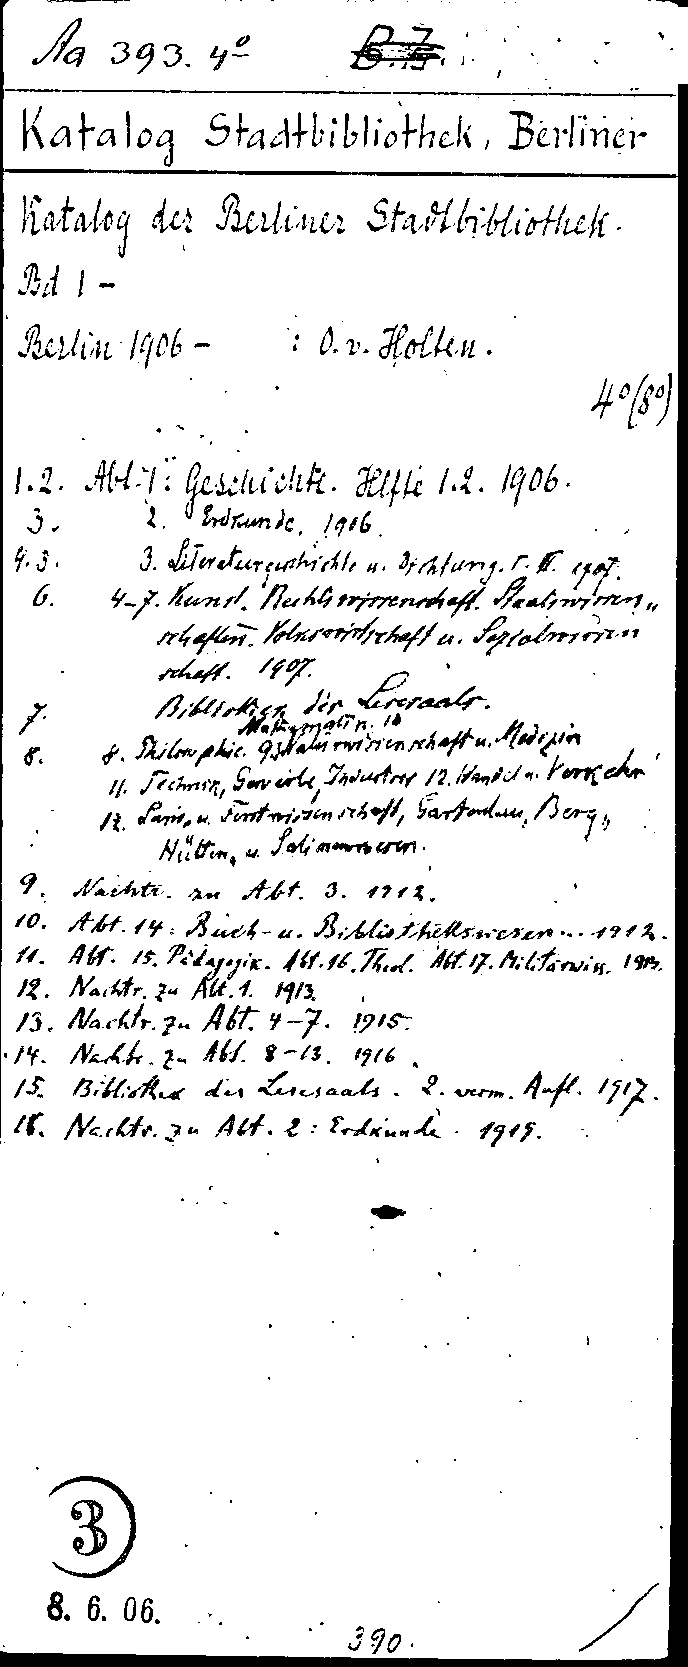 Aa 393. 4º B.7.
Katalog Stadtbibliothek, Berliner
Katalog der Berliner Stadtbibliothek.
Bd 1 -
Berlin 1906 - : O. v. Holten.
4º (8º)
1.2. Abt. 1: Geschichte. Hefte 1.2. 1906.
3. 2. Erdkunde. 1906.
4.5. 3. Literaturgeschichte u. Dichtung. I. II. 1907.
6. 4-7. Kunst. Rechtswissenschaft. Staatswissen„
schaften. Volkswirtschaft u. Sozialwissen
schaft. 1907.
7. Bibliothek des Lesesaals.
Mathematik u. 10
8. 8. Philosophie. 9 Naturwissenschaft u. Medizin
11. Technik, Gewerbe, Industrie 12. Handel u. Verkehr
u. Forstwissenschaft, Gartenbau, Berg„
Hütten„ u. Salinenwesen.
9. Nachtr. zu Abt. 3. 1912.
10. Abt. 14: Buch- u. Bibliothekswesen. 1912.
11. Abt. 15. Pädagogik. Abt. 16. Theol. Abt. 17. Militärwiss. 1913.
12. Nachtr. zu Abt. 1. 1913.
13. Nachtr. zu Abt. 4-7. 1915.
14. Nachtr. zu Abt. 8-13. 1916
15. Bibliothek des Lesesaals. 2. verm. Aufl. 1917.
Nachtr. zu Abt. 2: Erdkunde. 1919.
3
8. 6. 06.
390.